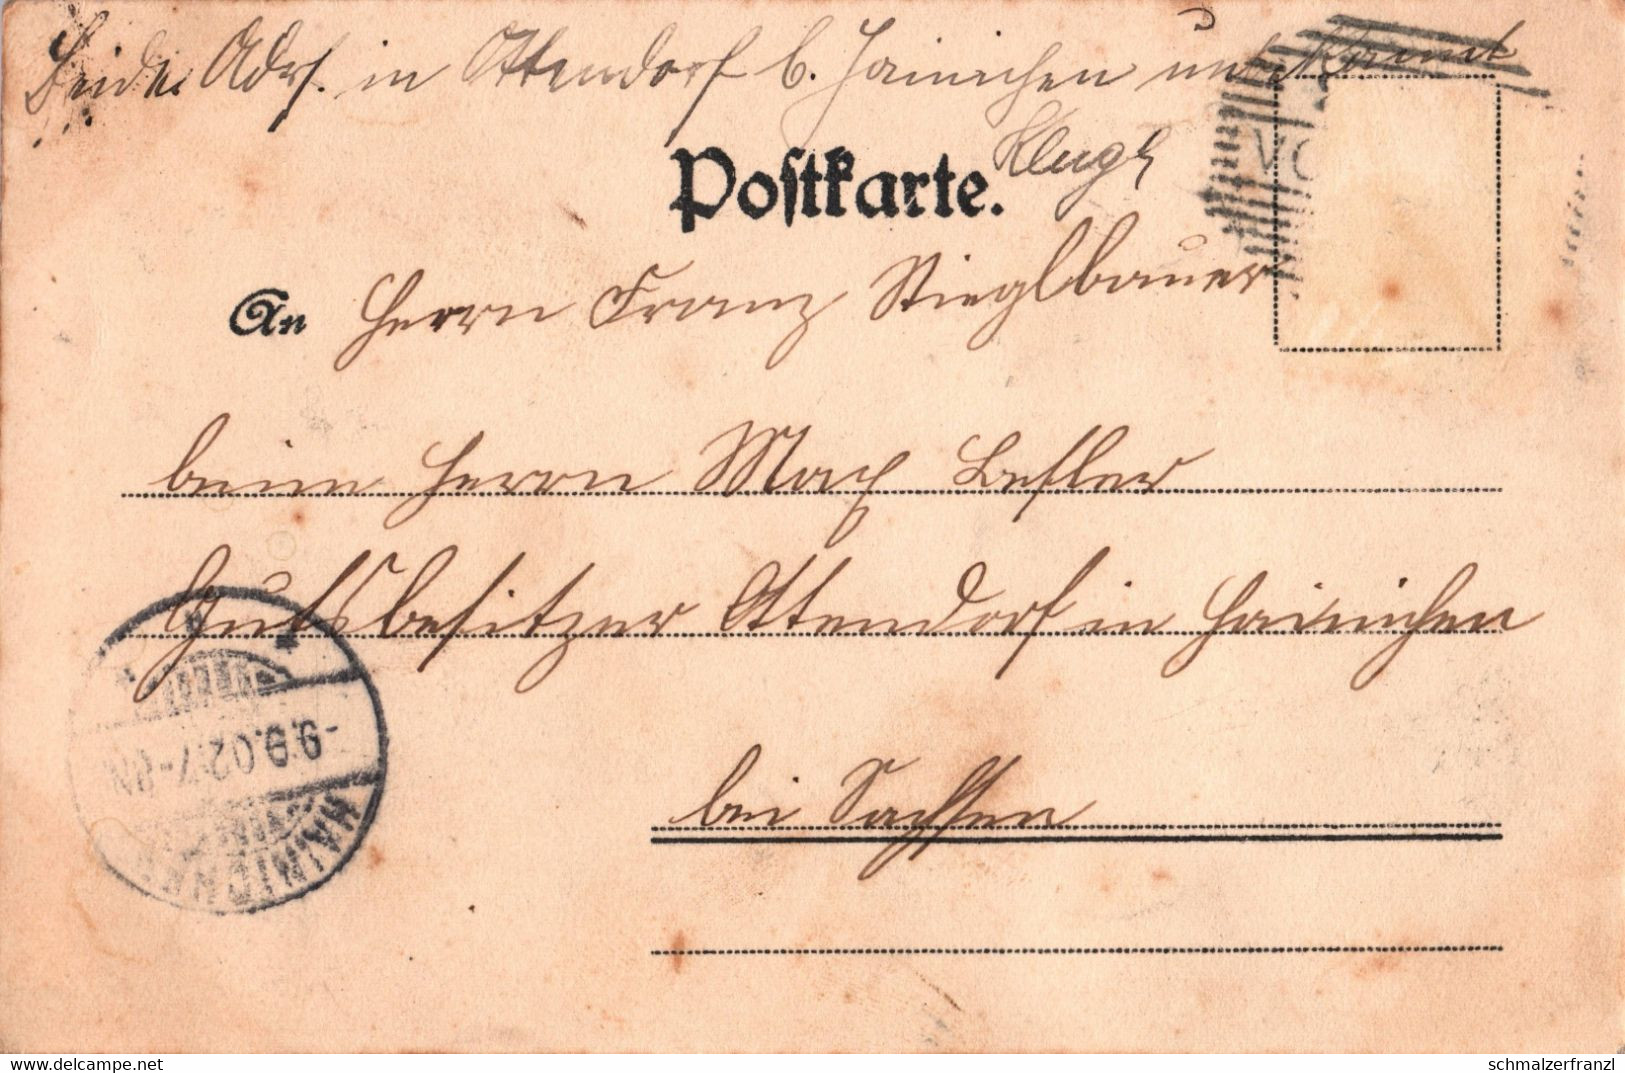 Beide Adrs. in Ottendorf b. Hainichen unbekannt
Klug
Postkarte.
An Herrn Franz Stieglbauer
beim Herrn Max Lessler
Gutsbesitzer Ottendorf in Hainichen
bei Sachsen
-9.9.02.7-8N
HAINICHEN
delcampe.net
schmalzerfranzl